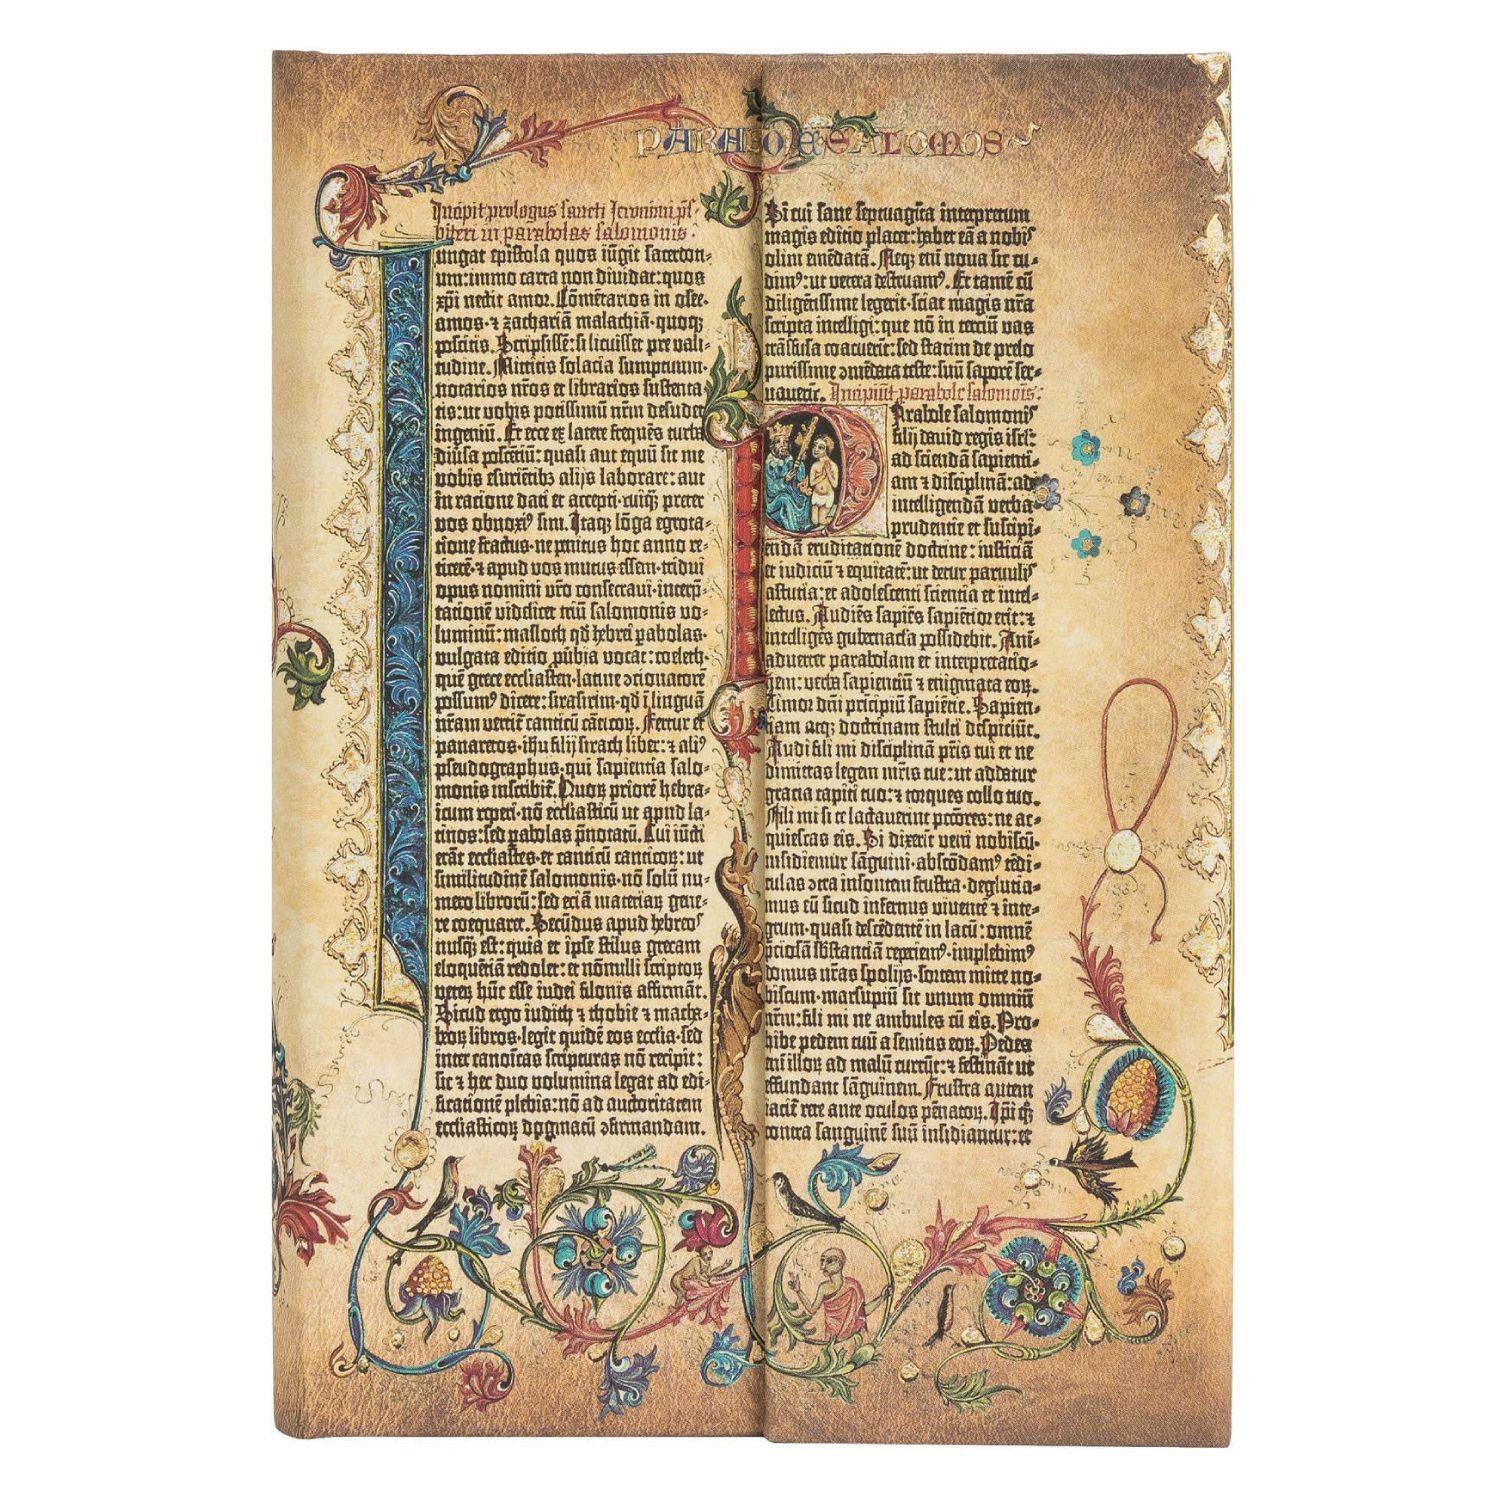 PARABOLAE SALOMOIS
Incipit prologus sancti Ieronimi p̄s-
biteri in parabolas salomonis.
Iungat epistola quos iūgit sacerdoti-
um: immo carta non diuidat: quos
xp̄i nectit amor. Cōmētarios in osee.
amos. ⁊ zachariā malachiā. quoqȝ
poscitis. Scripsissē: si licuisset pre vali-
tudine. Mittitis solacia sumptuum.
notarios nr̄os et librarios sustenta-
tis: ut vobis potissimū nr̄m desudet
ingeniū. Et ecce ex latere frequēs turba
diūsa poscētiū: quasi aut equū sit me
vobis esuriētibȝ alijs laborare: aut
in racione dati et accepti. cuiqȝ preter
vos obnoxiꝰ sim. Itaqȝ lōga egrota-
tione fractus. ne penitus hoc anno re-
ticerē. ⁊ apud vos mutus essem. tridui
opus nomini vr̄o consecraui. interp̄-
tationē videlicet triū salomonis vo-
luminū: masloth qd̄ hebrei ꝑabolas.
vulgata editio ꝓūbia vocat: coeleth.
quē grece ecclīasten. latine ↄcionatorē
possumꝰ dicere: sirasirim. qd̄ ī linguā
nr̄am vertit̄ canticū cāticoꝝ. Fertur et
panaretos. ihū filij sirach liber: ⁊ aliꝰ
pseudographus. qui sapientia salo-
monis inscribit̄. Quoꝝ priorē hebra-
icum reperi. nō ecclīasticū ut apud la-
tinos: sed ꝑabolas p̄notatū. Cui iūcti
erāt ecclīastes. et canticū canticoꝝ: ut
similitudinē salomonis. nō solū nu-
mero librorū: sed eciā materiaꝝ gene-
re coequaret. Secūdus apud hebreos
nusqȝ est: quia et ipse stilus grecam
eloquētiā redolet: et nōnulli scriptoꝝ
veteꝝ hūc esse iudei filonis affirmāt.
Sicud ergo iudith ⁊ thobie ⁊ macha-
beoꝝ libros. legit quidē eos ecclīa. sed
inter canoīcas scripturas nō recipit:
sic ⁊ hec duo volumina legat ad edi-
ficationē plebis: nō ad auctoritatem
ecclīasticoꝝ dogmatū ↄfirmandam.
Si cui sane septuagīta interpretum
magis editio placet: habet eā a nobis
olim emēdatā. Neqȝ em̄ noua sic cu-
dimꝰ: ut vetera destruamꝰ. Et tamē cū
diligētissime legerit. sciat magis nr̄a
scripta intelligi: que nō in terciū vas
trāsfusa coacuerīt: sed statim de prelo
purissime ↄmēdata teste: suū saporē ser-
uauerīt. Incipiūt parabole salomōis:
Parabole salomonis
filij dauid regis isrl̄:
ad sciendā sapienti-
am ⁊ disciplinā: ad
intelligendā verba
prudentie et suscipi-
endā eruditationē doctrine: iusticiā
et iudiciū ⁊ equitatē: ut detur paruulis
astutia: et adolescenti scientia et intel-
lectus. Audiēs sapiēs sapiētior erit: ⁊
intelligēs gubernacl̄a possidebit. Ani-
aduertet parabolam et interpretatio-
nem: verba sapientiū ⁊ enigmata eoꝝ.
Timor dn̄i prīcipiū sapiētie. Sapien-
tiam atqȝ doctrinam stulti despiciūt.
Audi fili mi disciplinā pr̄is tui et ne
dimittas legem mr̄is tue: ut addatur
gracia capiti tuo: ⁊ torques collo tuo.
Fili mi si te lactauerint pctōres: ne ac-
quiescas eis. Si dixerit veni nobiscū.
insidiemur sāguini. abscōdamꝰ tēdi-
culas ↄtra insontem frustra. deglutia-
mus eū sicud infernus viuentē ⁊ inte-
grum. quasi descēdentē in lacū: omnē
p̄ciosā sb̄stantiā reperiemꝰ. implebimꝰ
domus nr̄as spolijs. sortem mitte no-
biscum. marsupiū sit unum omniū
nr̄m: fili mi ne ambules cū eis. Pro-
hibe pedem tuū a semitis eoꝝ. Pedes
em̄ illoꝝ ad malū currūt: ⁊ festināt ut
effundant sāguinem. Frustra autem
iacit̄ rete ante oculos pēnatoꝝ. Ip̄i qȝ
contra sanguinē suū insidiantur: et